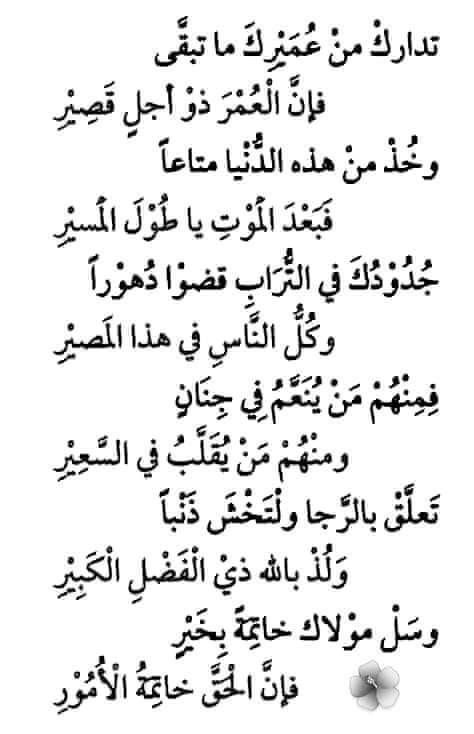 تداركْ منْ عُمَيْرِكَ ما تبقَّى
فإنَّ الْعُمْرَ ذوْ أجلٍ قَصِيْرِ
وخُذْ منْ هذه الدُّنْيا متاعاً
فَبَعْدَ الْمَوْتِ يا طُوْلَ الْمسيْرِ
جُدُوْدُكَ في التُّرَابِ قضوْا دُهوْراً
وكُلُّ النَّاسِ في هذا المَصيْرِ
فِمِنْهُمْ مَنْ يُنَعَّمُ فِي جِنَانٍ
ومنْهُمْ مَنْ يُقَلَّبُ في السَّعِيْرِ
تَعلَّقْ بالرَّجا ولْتَخْشَ ذَنْباً
وَلُذْ بالله ذيْ الْفَضْلِ الْكَبِيْرِ
وسَلْ موْلاك خاتِمَةً بِخَيْرٍ
فإنَّ الْحَقَّ خاتِمَةُ الْأُمُوْرِ